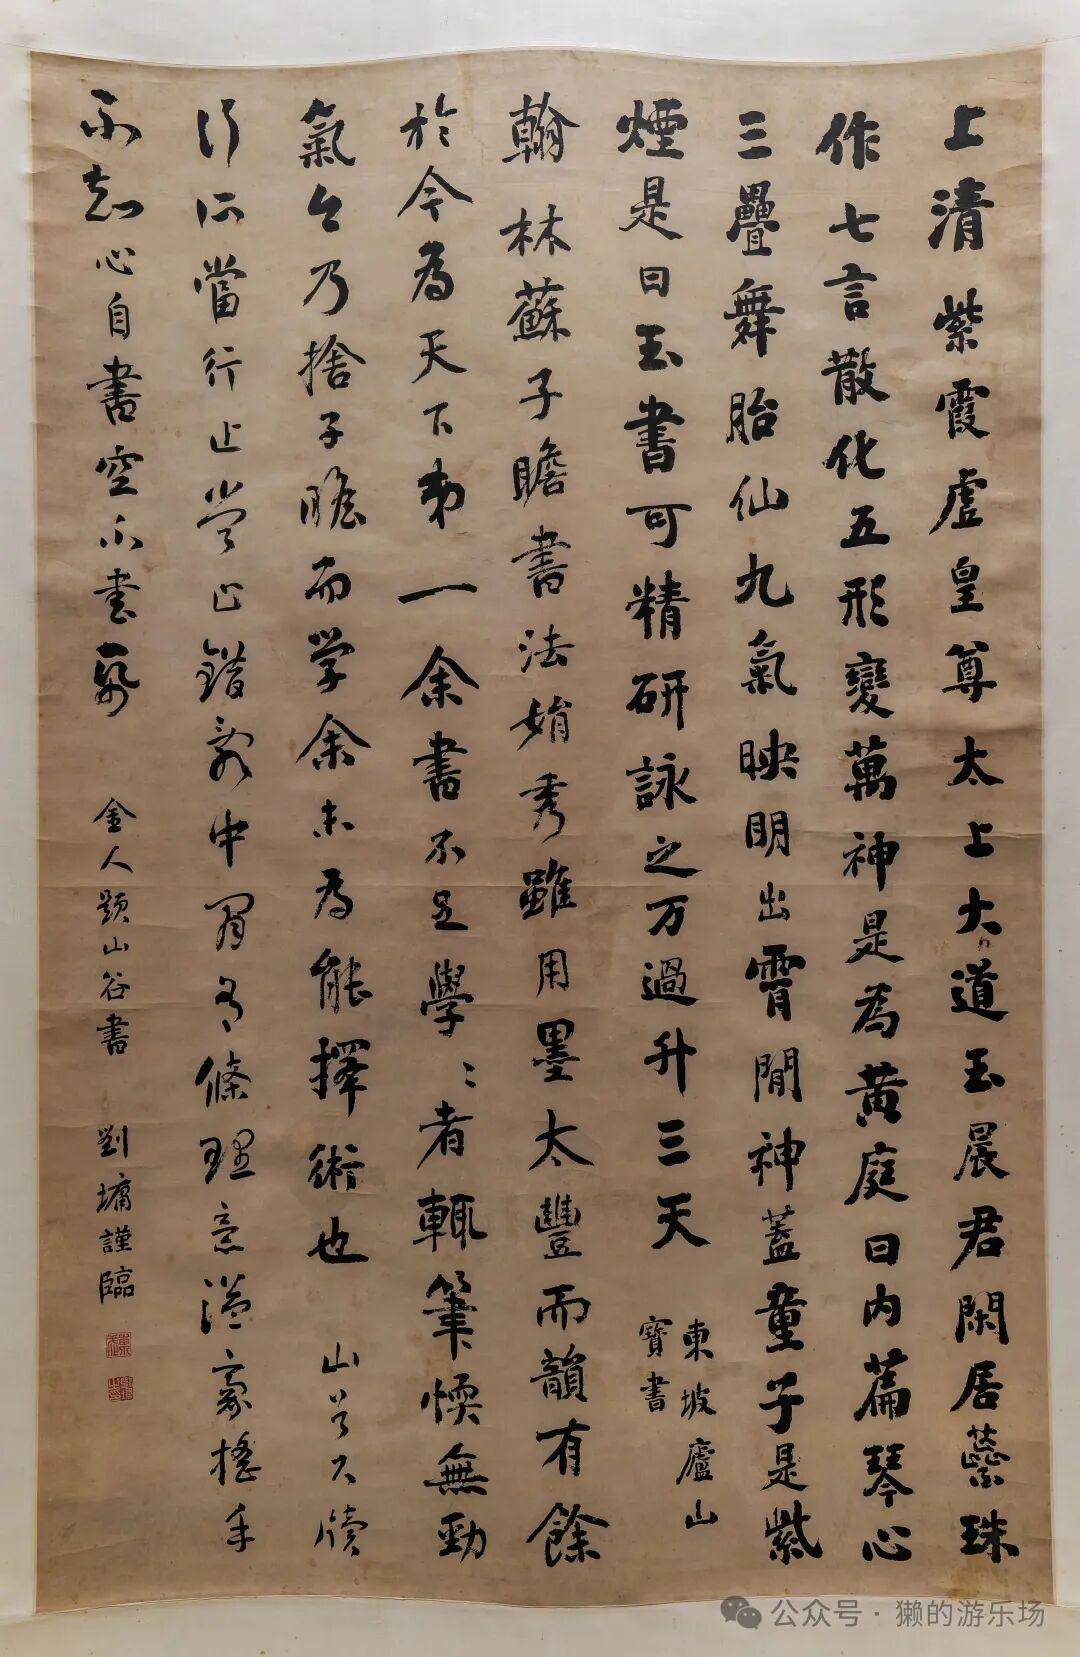 上清紫霞虛皇尊太上大道玉晨君閑居蘂珠
作七言散化五形變萬神是為黃庭曰內篇琴心
三疊舞胎仙九氣映明出霄間神蓋童子是紫
煙是曰玉書可精研詠之万過升三天
東坡廬山
寶書
翰林蘇子瞻書法娟秀雖用墨太豐而韻有餘
於今為天下第一余書不足學〻者輒筆愞無勁
氣今乃捨子瞻而學余未為能擇術也
山谷尺牘
行所當行止當止錯亂中間有條理意溢豪搖手
不知心自書空不書紙
金人題山谷書
劉墉謹臨
公众号·獭的游乐场